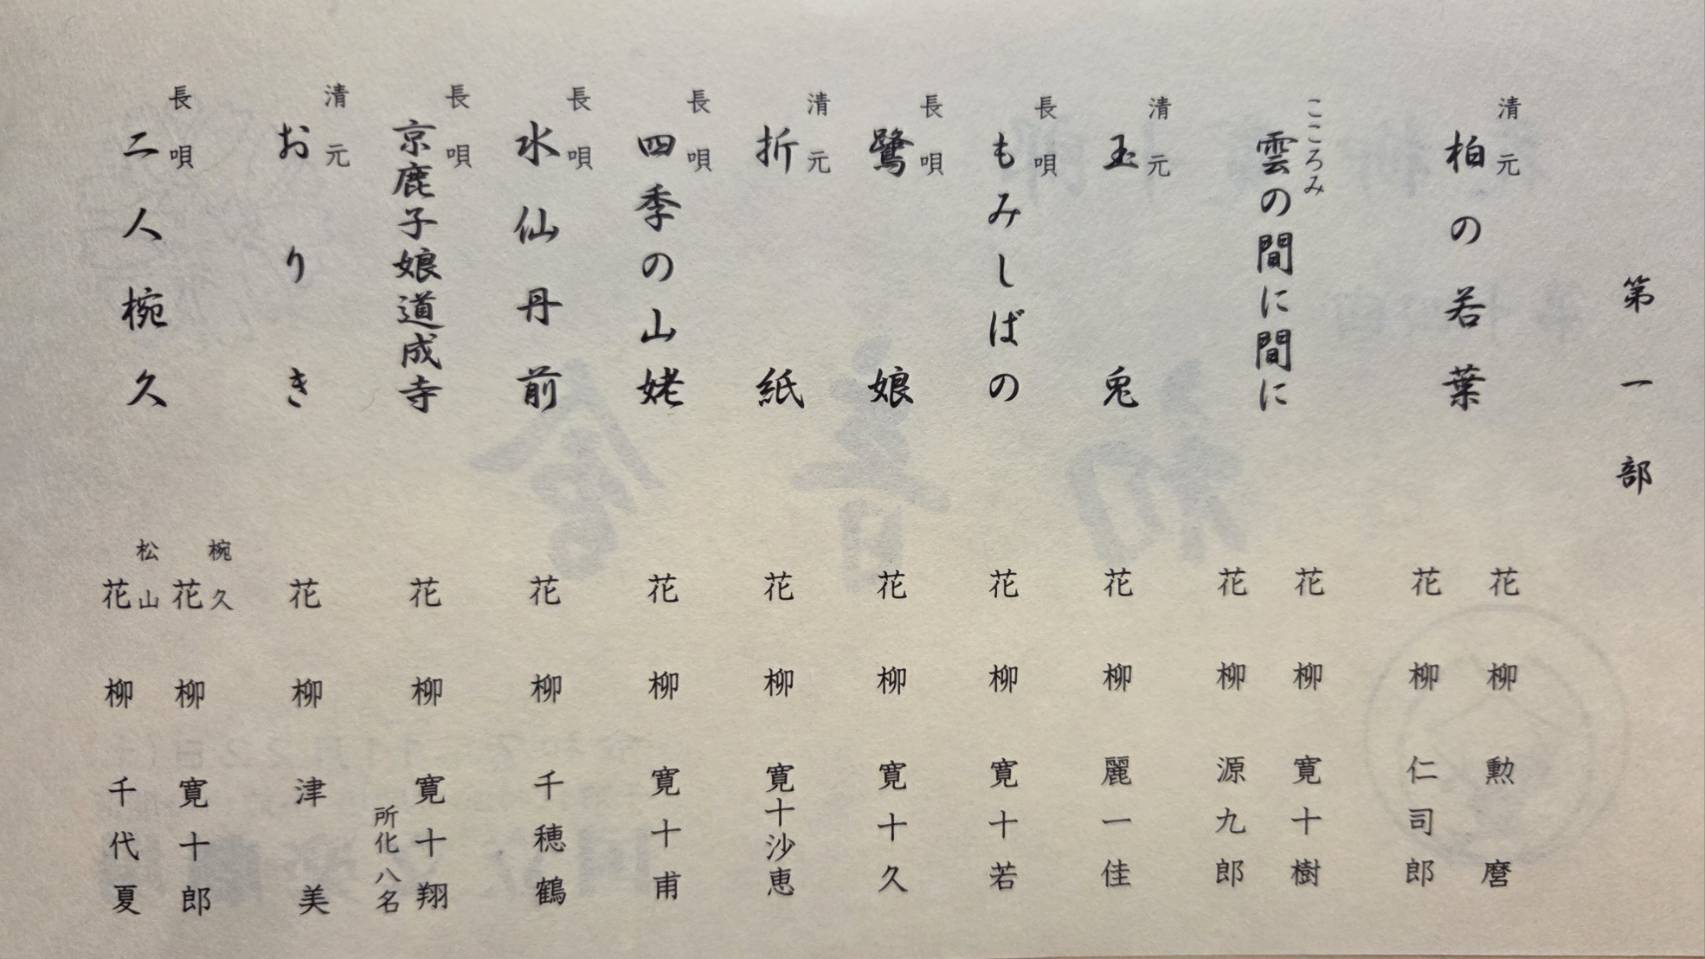 第一部
清元
柏の若葉
花柳勲麿
花柳仁司郎
こころみ
雲の間に間に
花柳寛十樹
花柳源九郎
清元
玉兎
花柳麗一佳
長唄
もみしばの
花柳寛十若
長唄
鷺娘
花柳寛十久
清元
折紙
花柳寛十沙恵
長唄
四季の山姥
花柳寛十甫
長唄
水仙丹前
花柳千穂鶴
長唄
京鹿子娘道成寺
花柳寛十翔
所化八名
清元
おりき
花柳津美
長唄
二人椀久
椀久
花柳寛十郎
松山
花柳千代夏